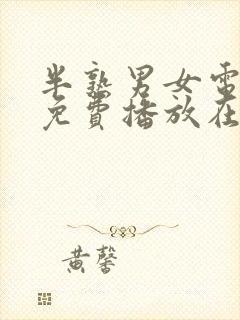 半熟男女電
免費播放在
黄馨